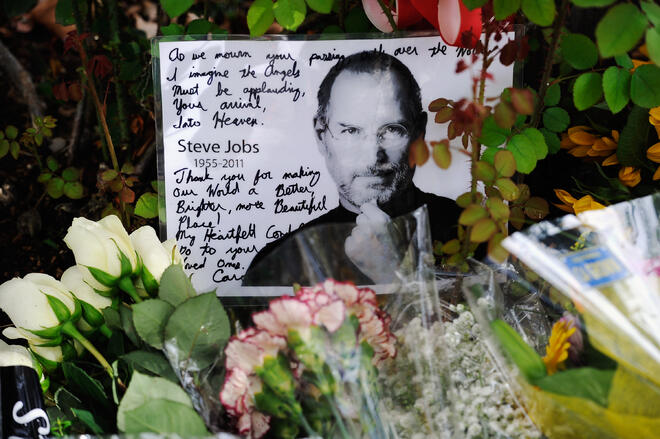 As we mourn your passing over the World
I imagine the Angels
Must be applauding,
Your arrival,
Into Heaven.
Steve Jobs
1955-2011
Thank you for making
Our World a Better
Brighter, more Beautiful
Place!
My Heartfelt
Go to your
Loved Ones.
S